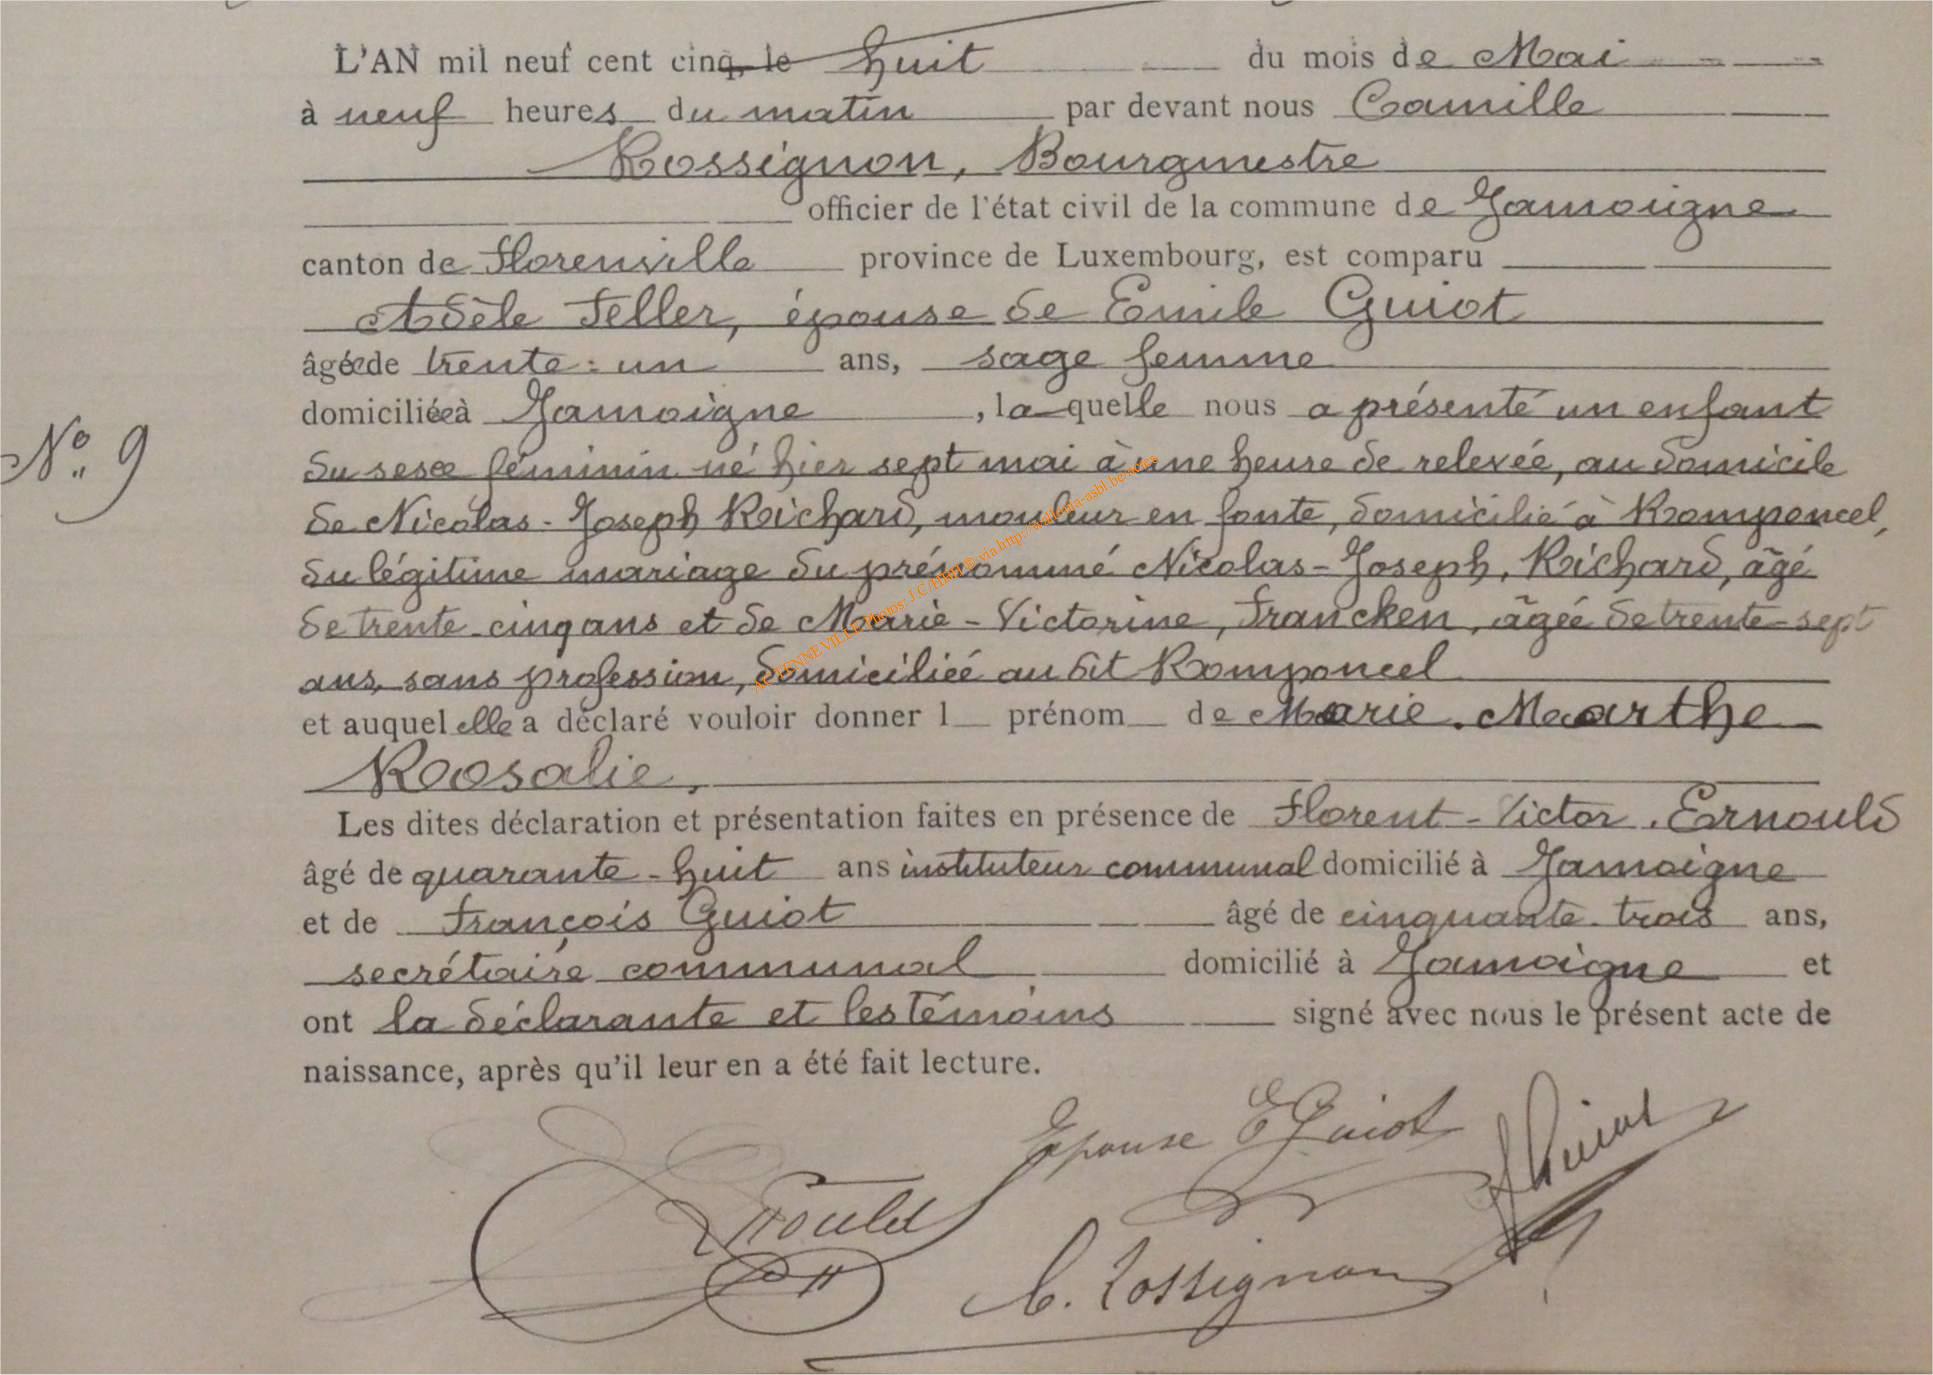 L'AN mil neuf cent cinq, le huit du mois de Mai
à neuf heures du matin par devant nous Camille
Rossignon, Bourgmestre
officier de l'état civil de la commune de Jamoigne
canton de Florenville province de Luxembourg, est comparu
Adèle Feller, épouse de Emile Guiot
âgée de trente-un ans, sage femme
domiciliée à Jamoigne, laquelle nous a présenté un enfant
N° 9
du sexe féminin né hier sept mai à une heure de relevée, au domicile
de Nicolas-Joseph Richard, mouleur en fonte, domicilié à Romponcel,
du légitime mariage du prénommé Nicolas-Joseph, Richard, âgé
de trente-cinq ans et de Marie-Victorine, Francken, âgée de trente-sept
ans, sans profession, domiciliée au dit Romponcel
et auquel elle a déclaré vouloir donner l prénom de Marie. Marthe
Rosalie.
Les dites déclaration et présentation faites en présence de Florent-Victor. Ernould
âgé de quarante-huit ans instituteur communal domicilié à Jamoigne
et de François Guiot âgé de cinquante-trois ans,
secrétaire communal domicilié à Jamoigne et
ont la déclarante et les témoins signé avec nous le présent acte de
naissance, après qu'il leur en a été fait lecture.
Epouse E Guiot
C. Rossignon